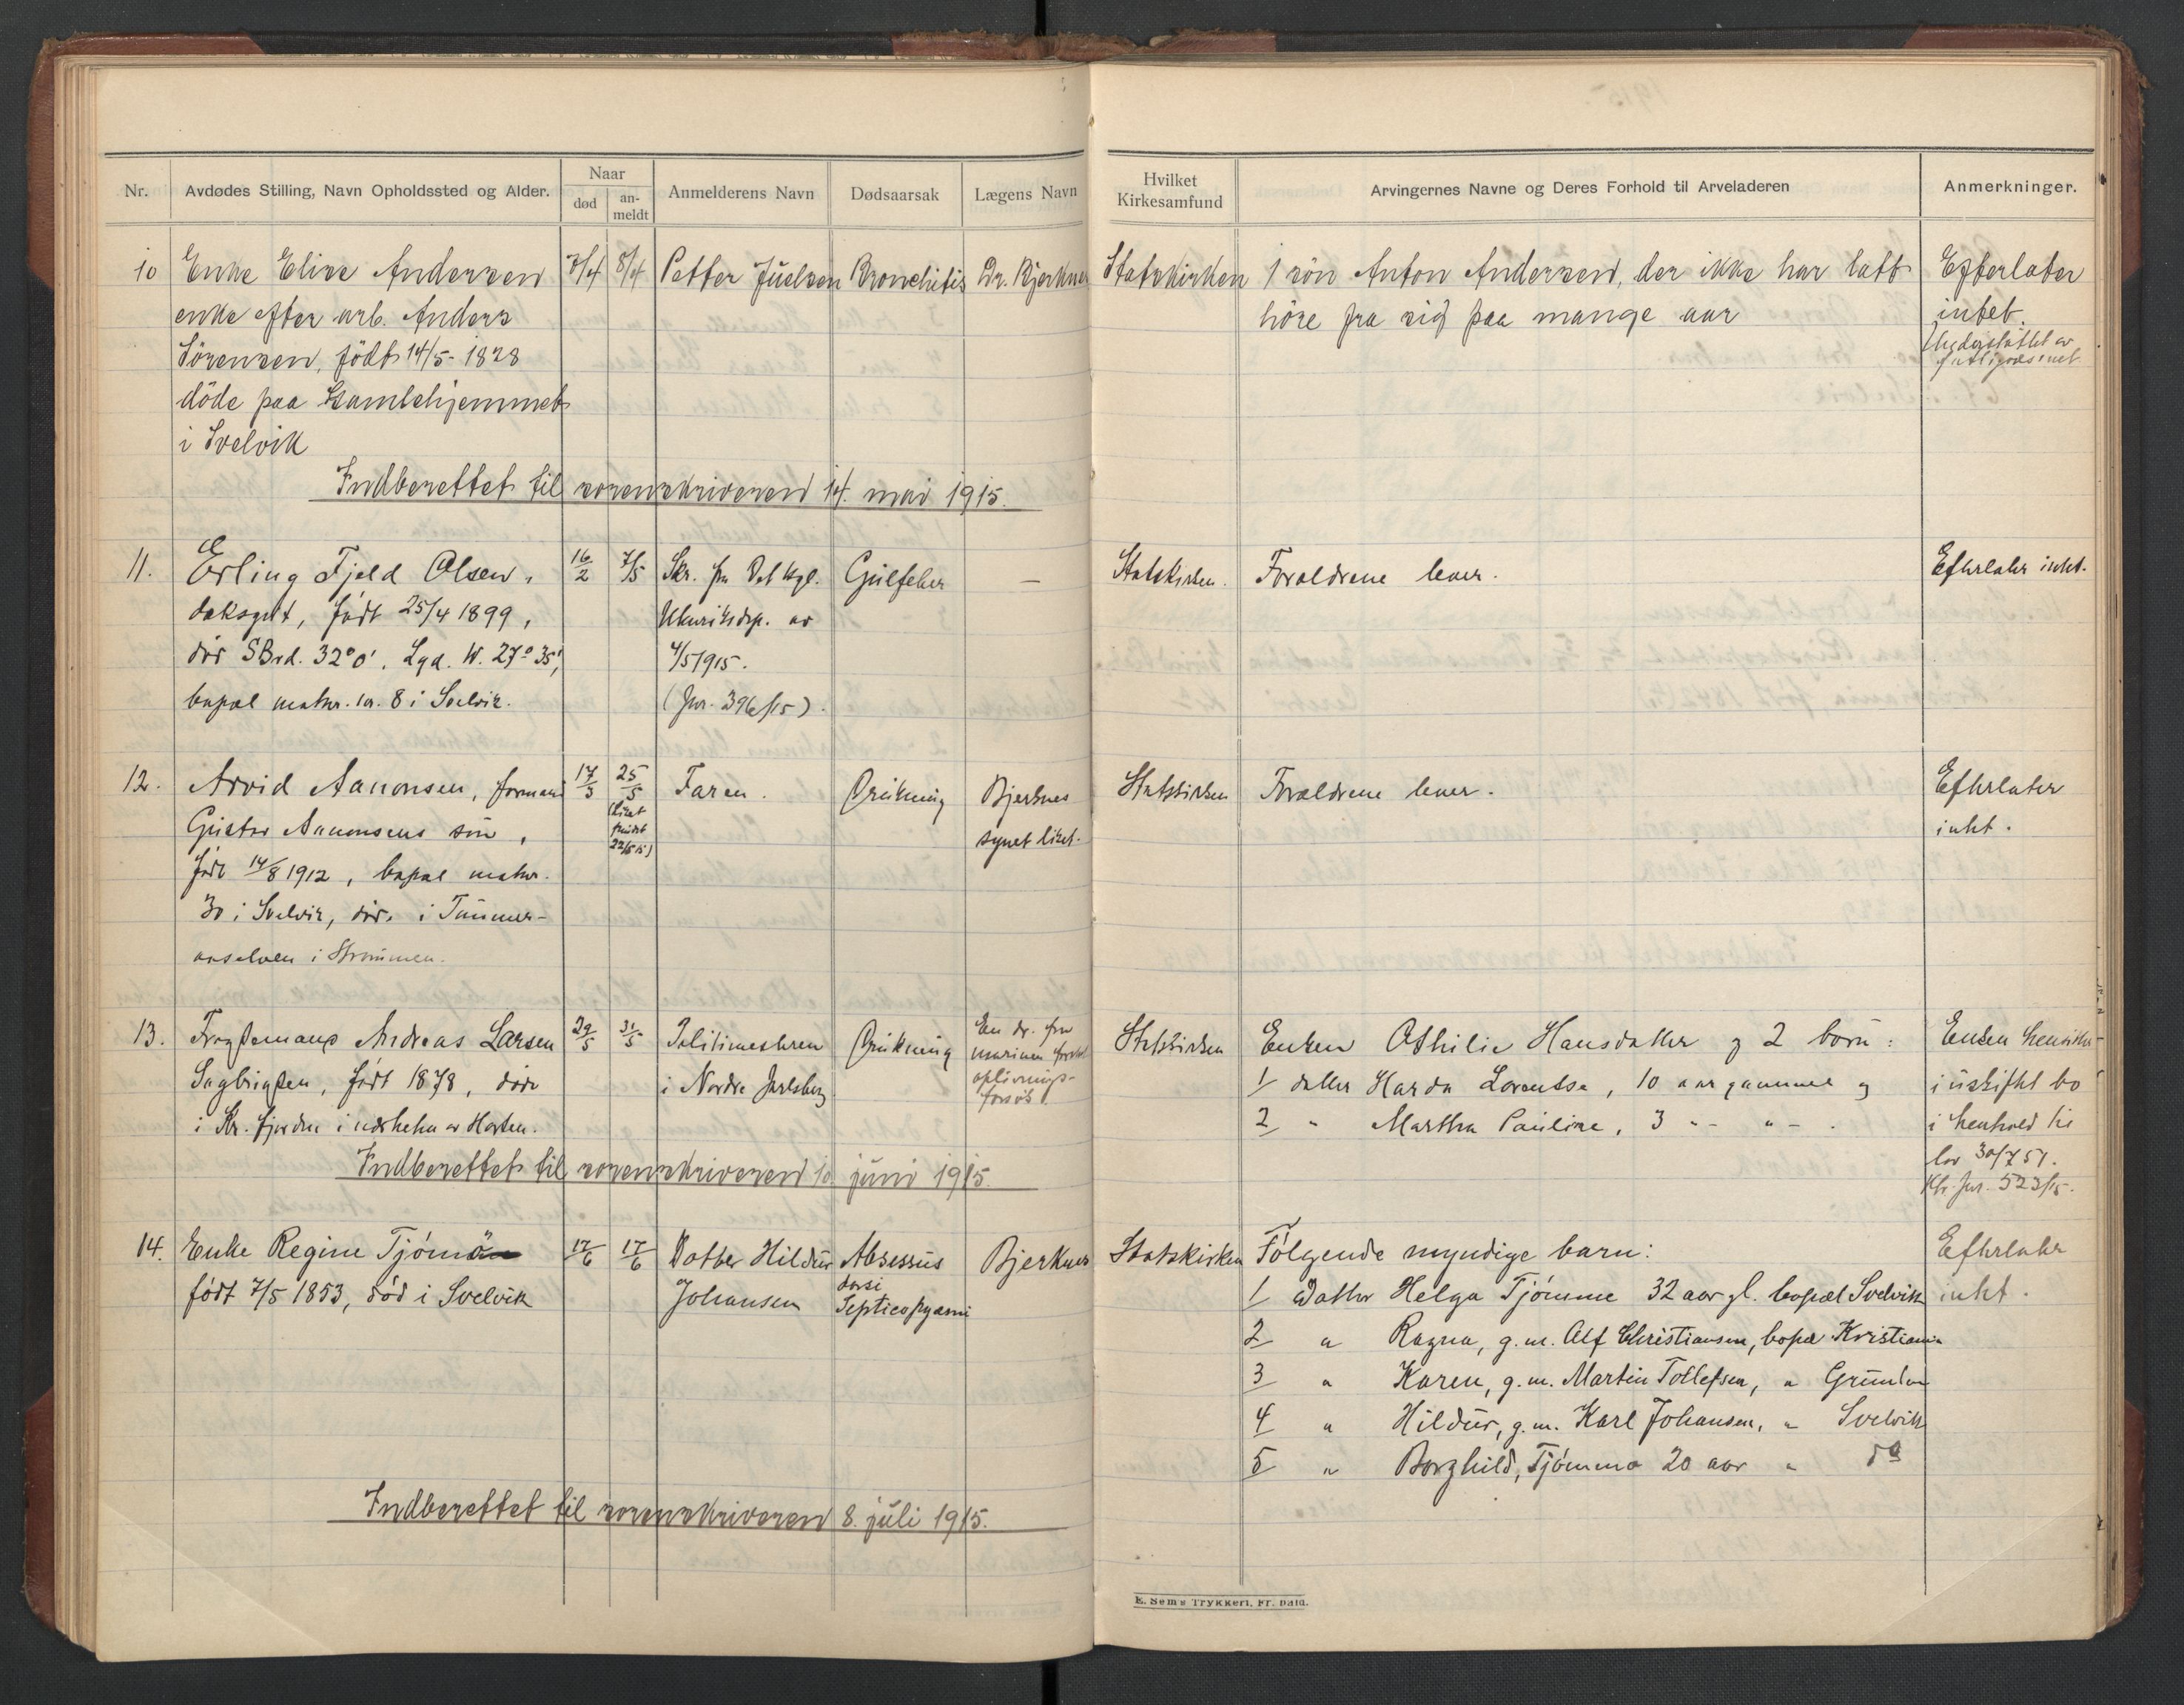 Nr.
Avdødes Stilling, Navn Opholdssted og Alder.
Naar
død
an-
meldt
Anmelderens Navn
Dødsaarsak
Lægens Navn
Hvilket
Kirkesamfund
Arvingernes Navne og Deres Forhold til Arveladeren
Anmerkninger.
10
Enke Elise Andersen
enke efter arb. Anders
Sörensen, födt 14/5-1828
döde paa Gamlehjemmet
i Svelvik
7/4
8/4
Petter Juelsen
Bronchitis
Dr. Bjerknes
Statskirken
1 sön Anton Andersen, der ikke har latt
höre fra sig paa mange aar
Efterlater
intet.
Understøttet av
fattigvæsenet
Indberettet til sorenskriveren 14. mai 1915.
11.
Erling Fjeld Olsen,
dæksgut, født 25/4 1899,
død SBrd. 32° 0', Lgd. W. 27° 35',
bopæl matr. nr. 8 i Svelvik.
16/2
7/5
Skr. fra Det kgl.
Utenriksdep. av
4/5 1915.
(Jnr. 396/15).
Gulfeber
—
Statskirken.
Forældrene lever.
Efterlater intet.
12.
Arvid Aanonsen, formand
Gustav Aanonsens søn,
født 14/8 1912, bopæl matr.
30 i Svelvik, død i Tømmer-
aaselven i Strømmen.
17/3
25/5
(Liket
fundet
22/5 15)
Faren.
Drukning
Bjerknes
synet liket.
Statskirken
Forældrene lever.
Efterlater
intet.
13.
Fragtemand Andreas Larsen
Sagbrigten, født 1878, døde
i Kr. fjorden i nærheten av Horten.
29/5
31/5
Politimesteren
i Nordre Jarlsberg
Drukning
En dr. fra
marinen forsøk
oplivnings-
forsøk.
Statskirken
Enken Othilie Hansdatter og 2 børn:
1/ datter Harda Lorentse, 10 aar gammel og
2 " Martha Pauline, 3 " - " - .
Enken hensitter
i uskiftet bo
i henhold til
lov 30/7 51.
Kfr. Jnr. 523/15.
Indberettet til sorenskriveren 10. juni 1915.
14.
Enke Regine Tjømö
født 7/5 1853, død i Svelvik
17/6
17/6
Datter Hildur
Johansen
Absessus
dorsi
Septicopyæmi
Bjerknes
Statskirken
Følgende myndige barn:
1/ Datter Helga Tjömme 32 aar gl. bopæl Svelvik
2 " Ragna, g. m. Alf Christiansen, bopæl Kristiania
3 " Karen, g. m. Martin Tollefsen, " Grimstad
4 " Hildur, g. m. Karl Johansen, " Svelvik
5 " Borghild, Tjömmø 20 aar " do
Efterlater
intet.
Indberettet til sorenskriveren 8. juli 1915.
E. Sem's Trykkeri, Fr. hald.